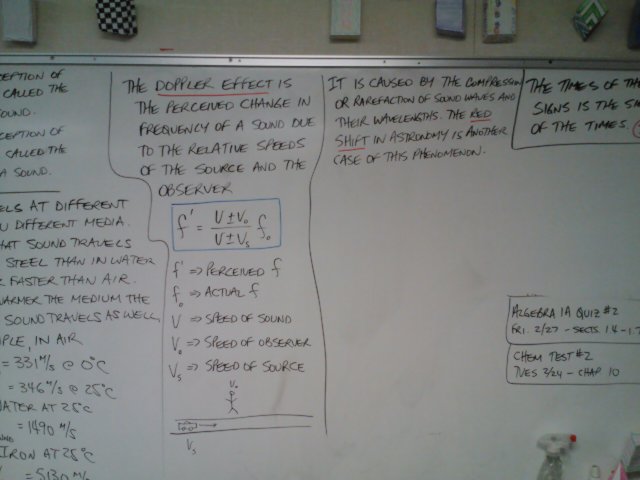 CEPTION OF
CALLED THE
OUND.
CEPTION OF
CALLED THE
A SOUND.
ELS AT DIFFERENT
U DIFFERENT MEDIA.
HAT SOUND TRAVELS
STEEL THAN IN WATER
R FASTER THAN AIR.
WARMER THE MEDIUM THE
SOUND TRAVELS AS WELL,
PLE, IN AIR
= 331 M/S @ 0°C
= 346 M/S @ 25°C
WATER AT 25°C
= 1490 M/S
IRON AT 25°C
= 5130 M/S
THE DOPPLER EFFECT IS
THE PERCEIVED CHANGE IN
FREQUENCY OF A SOUND DUE
TO THE RELATIVE SPEEDS
OF THE SOURCE AND THE
OBSERVER
f' = (V ± Vo)/(V ± Vs) fo
f' => PERCEIVED f
fo => ACTUAL f
V => SPEED OF SOUND
Vo => SPEED OF OBSERVER
Vs => SPEED OF SOURCE
Vo
Vs
IT IS CAUSED BY THE COMPRESSION
OR RAREFACTION OF SOUND WAVES AND
THEIR WAVELENGTHS. THE RED
SHIFT IN ASTRONOMY IS ANOTHER
CASE OF THIS PHENOMENON.
THE TIMES OF THE
SIGNS IS THE SI
OF THE TIMES.
ALGEBRA 1A QUIZ #2
FRI. 2/27 - SECTS 1.4 - 1.7
CHEM TEST #2
TUES 3/24 - CHAP 10